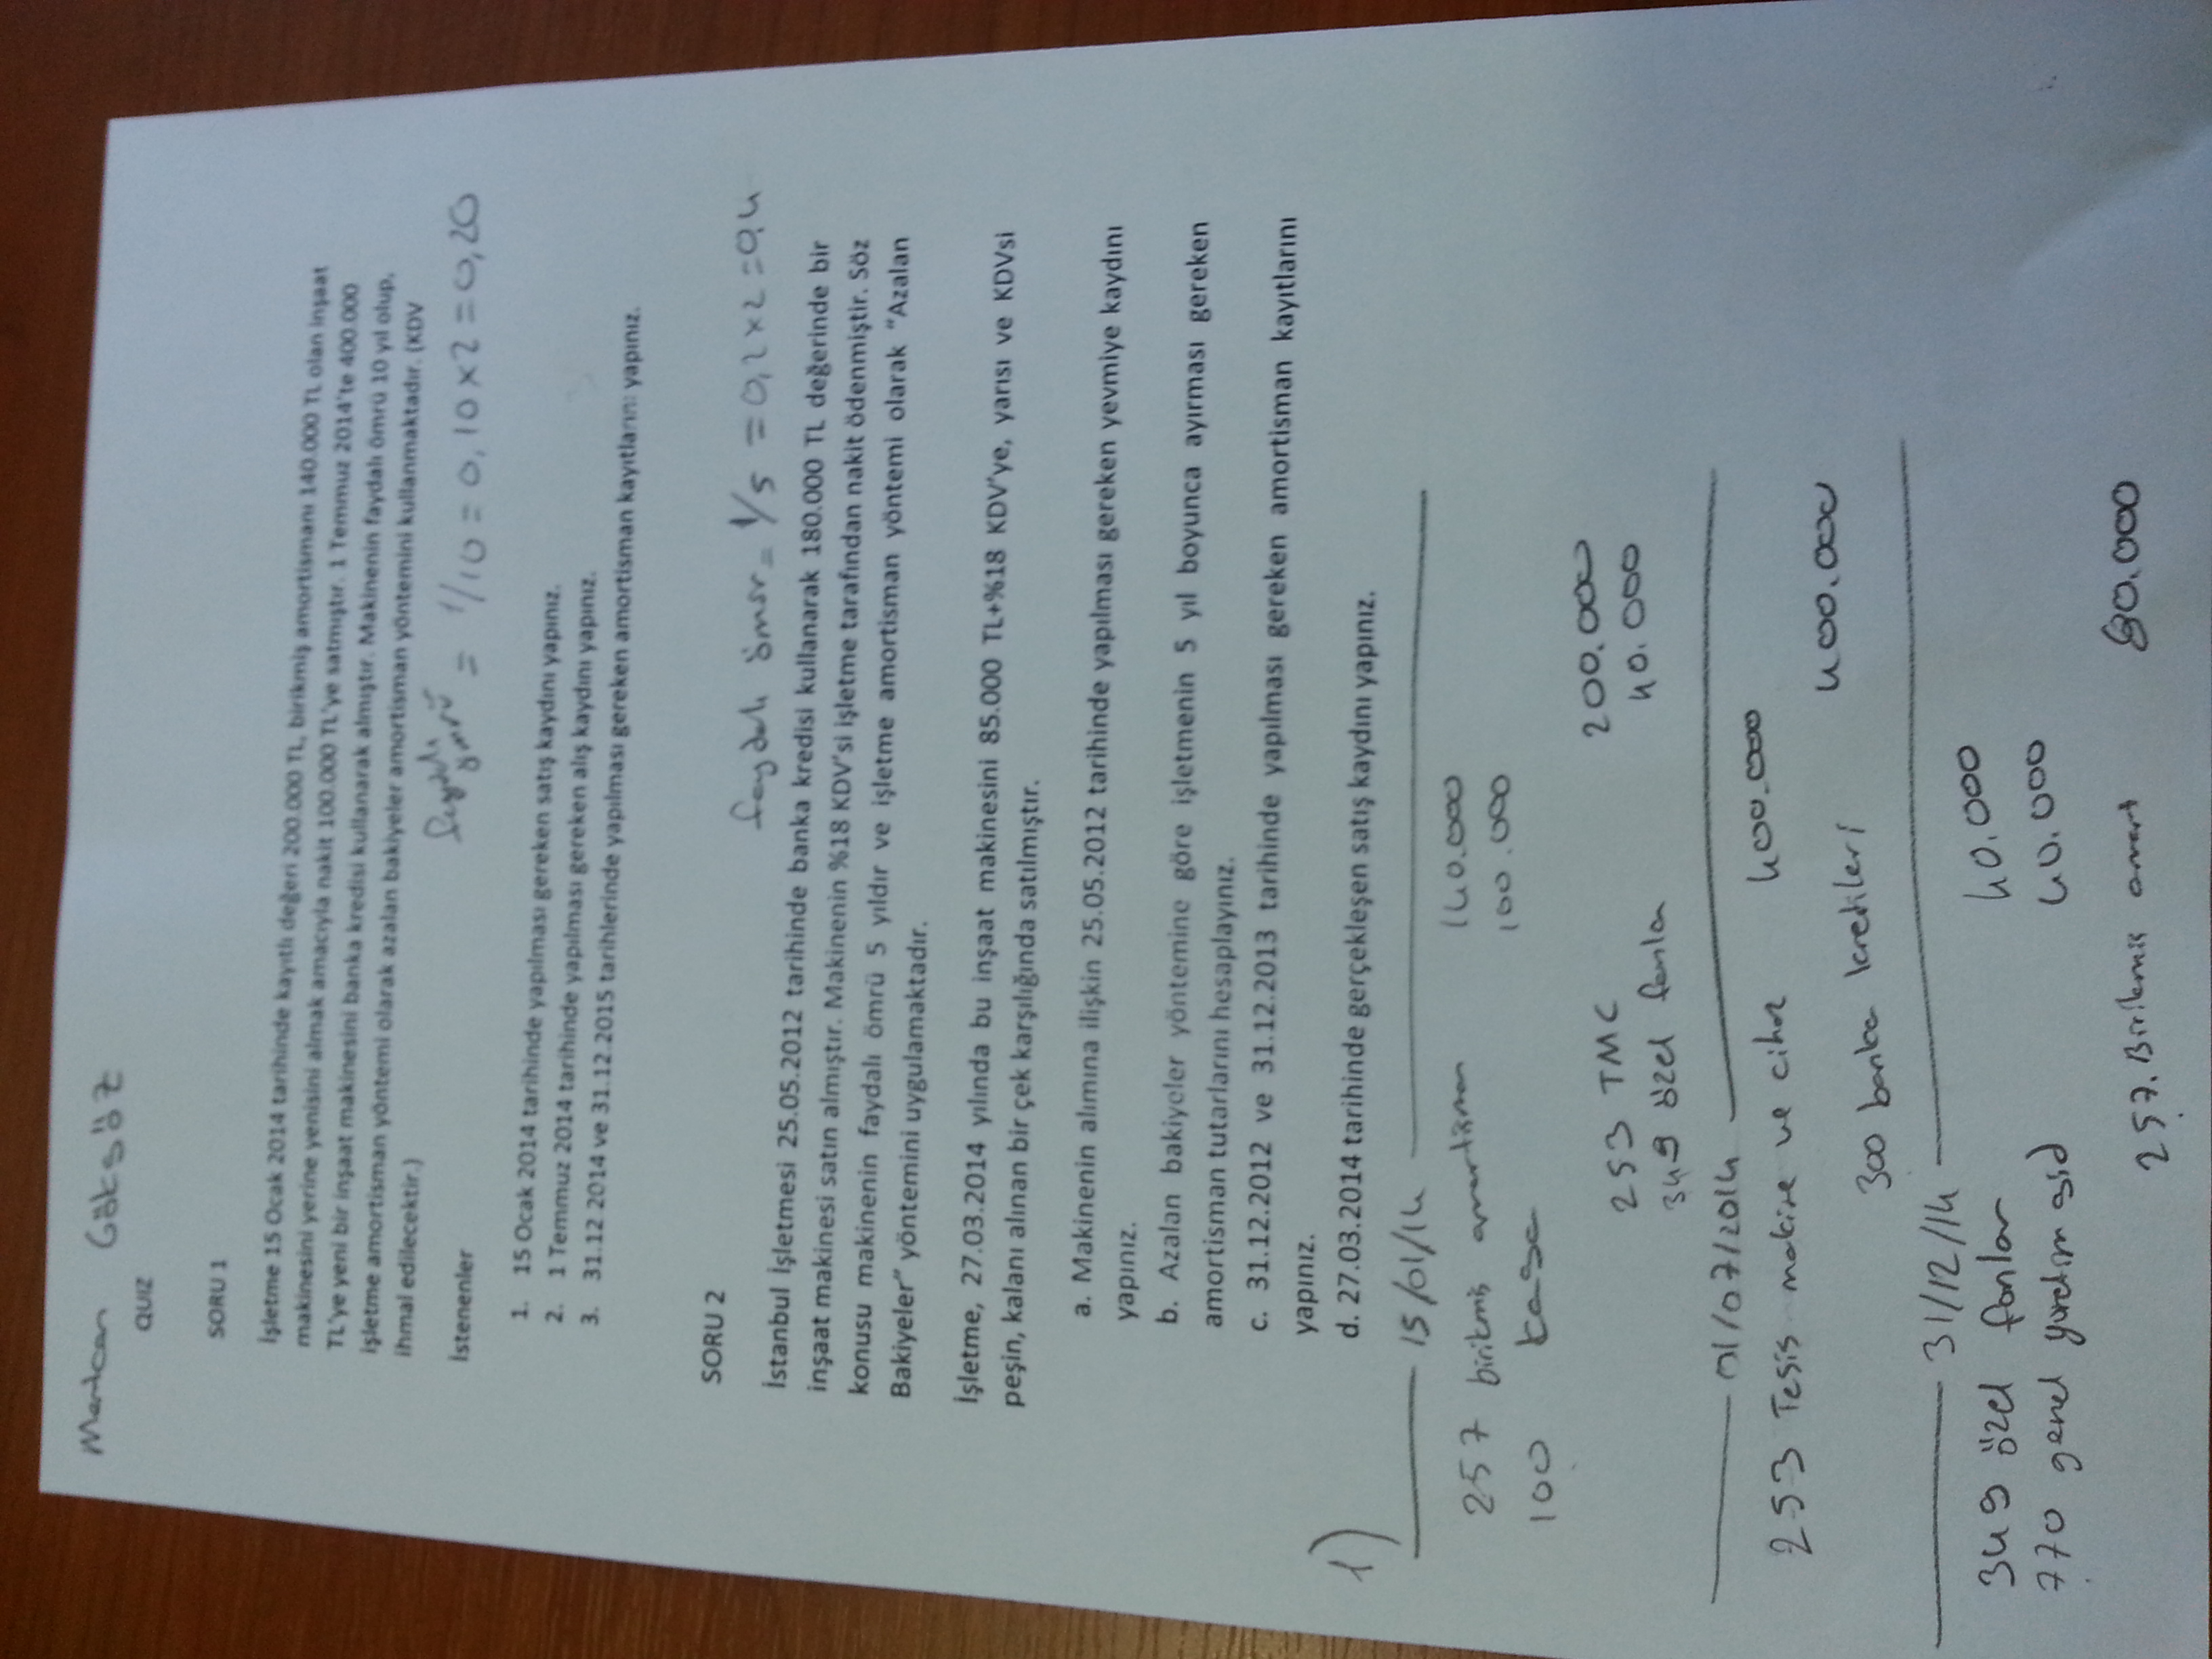 Mertcan Göksöz
QUIZ
SORU 1
İşletme 15 Ocak 2014 tarihinde kayıtlı değeri 200.000 TL, birikmiş amortismanı 140.000 TL olan inşaat
makinesini yerine yenisini almak amacıyla nakit 100.000 TL'ye satmıştır. 1 Temmuz 2014'te 400.000
TL'ye yeni bir inşaat makinesini banka kredisi kullanarak almıştır. Makinenin faydalı ömrü 10 yıl olup,
işletme amortisman yöntemi olarak azalan bakiyeler amortisman yöntemini kullanmaktadır. (KDV
ihmal edilecektir.)
faydalı ömrü = 1/10 = 0,10x2 = 0,20
İstenenler
1. 15 Ocak 2014 tarihinde yapılması gereken satış kaydını yapınız.
2. 1 Temmuz 2014 tarihinde yapılması gereken alış kaydını yapınız.
3. 31.12.2014 ve 31.12.2015 tarihlerinde yapılması gereken amortisman kayıtlarını yapınız.
SORU 2
faydalı ömür = 1/5 = 0,2x2 = 0,4
İstanbul İşletmesi 25.05.2012 tarihinde banka kredisi kullanarak 180.000 TL değerinde bir
inşaat makinesi satın almıştır. Makinenin %18 KDV'si işletme tarafından nakit ödenmiştir. Söz
konusu makinenin faydalı ömrü 5 yıldır ve işletme amortisman yöntemi olarak "Azalan
Bakiyeler" yöntemini uygulamaktadır.
İşletme, 27.03.2014 yılında bu inşaat makinesini 85.000 TL+%18 KDV'ye, yarısı ve KDVsi
peşin, kalanı alınan bir çek karşılığında satılmıştır.
a. Makinenin alımına ilişkin 25.05.2012 tarihinde yapılması gereken yevmiye kaydını
yapınız.
b. Azalan bakiyeler yöntemine göre işletmenin 5 yıl boyunca ayırması gereken
amortisman tutarlarını hesaplayınız.
c. 31.12.2012 ve 31.12.2013 tarihinde yapılması gereken amortisman kayıtlarını
yapınız.
d. 27.03.2014 tarihinde gerçekleşen satış kaydını yapınız.
1)
15/01/14
257 birikmiş amortisman 140.000
100 kasa 100.000
253 TMC 200.000
349 özel fonlar 40.000
01/07/2014
253 Tesis makine ve cihaz 400.000
300 banka kredileri 400.000
31/12/14
349 özel fonlar 40.000
770 genel yönetim gid 40.000
257. Birikmiş amort 80.000